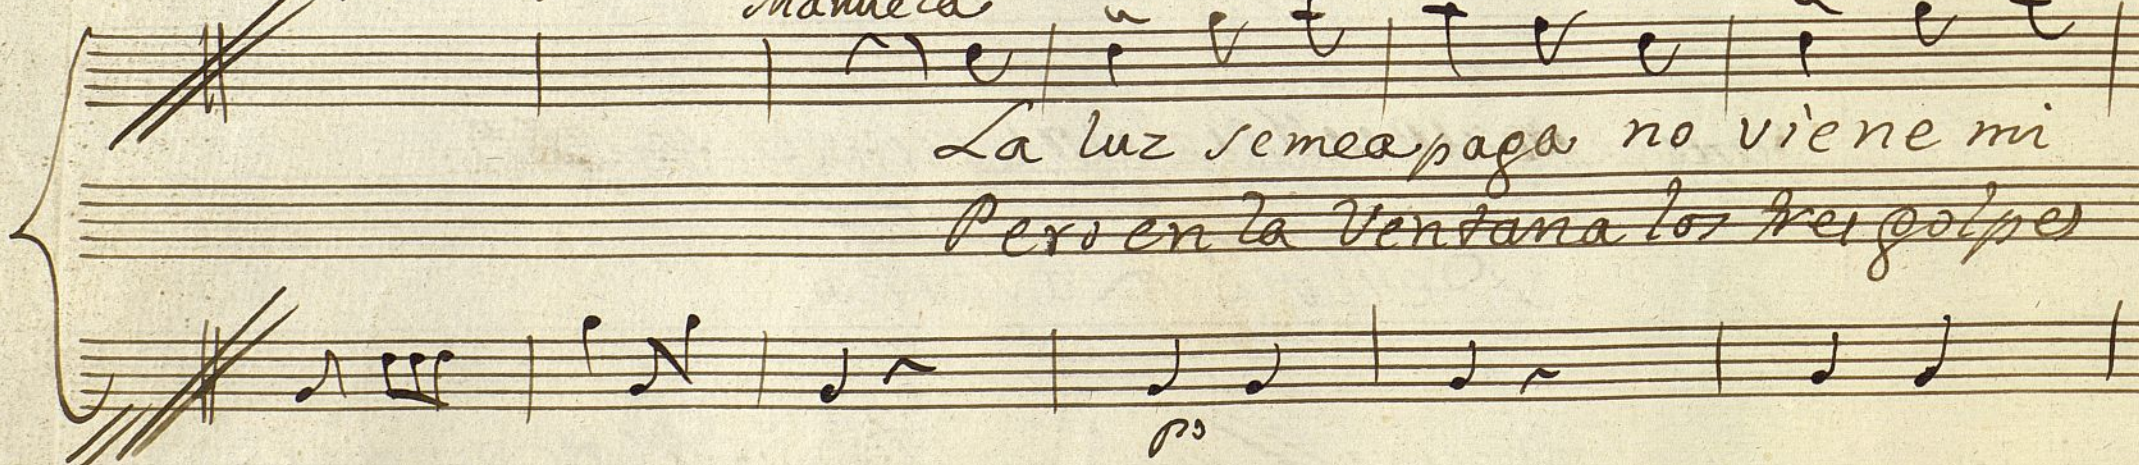 Manuela
La luz semea paga no viene mi
Pero en la Ventana los tres golpes
po